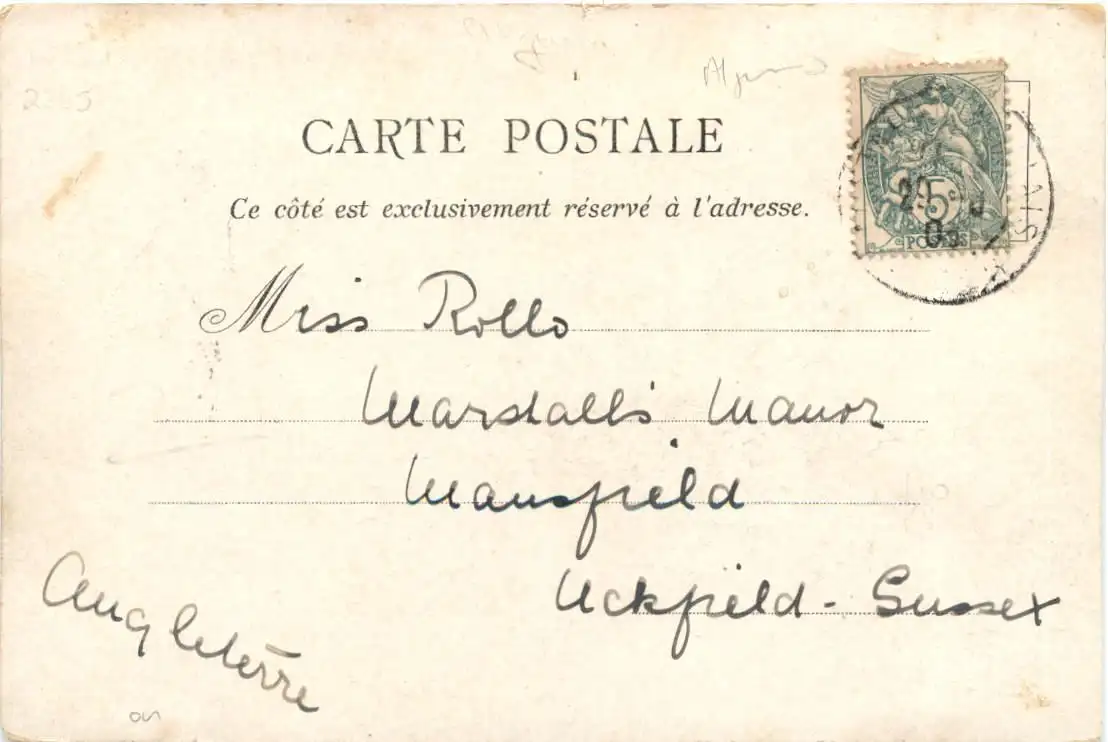 CARTE POSTALE
Ce côté est exclusivement réservé à l'adresse.
5
POSTES
29
03
Miss Rollo
Marshalls Manor
Mansfield
Uckfield - Sussex
Angleterre